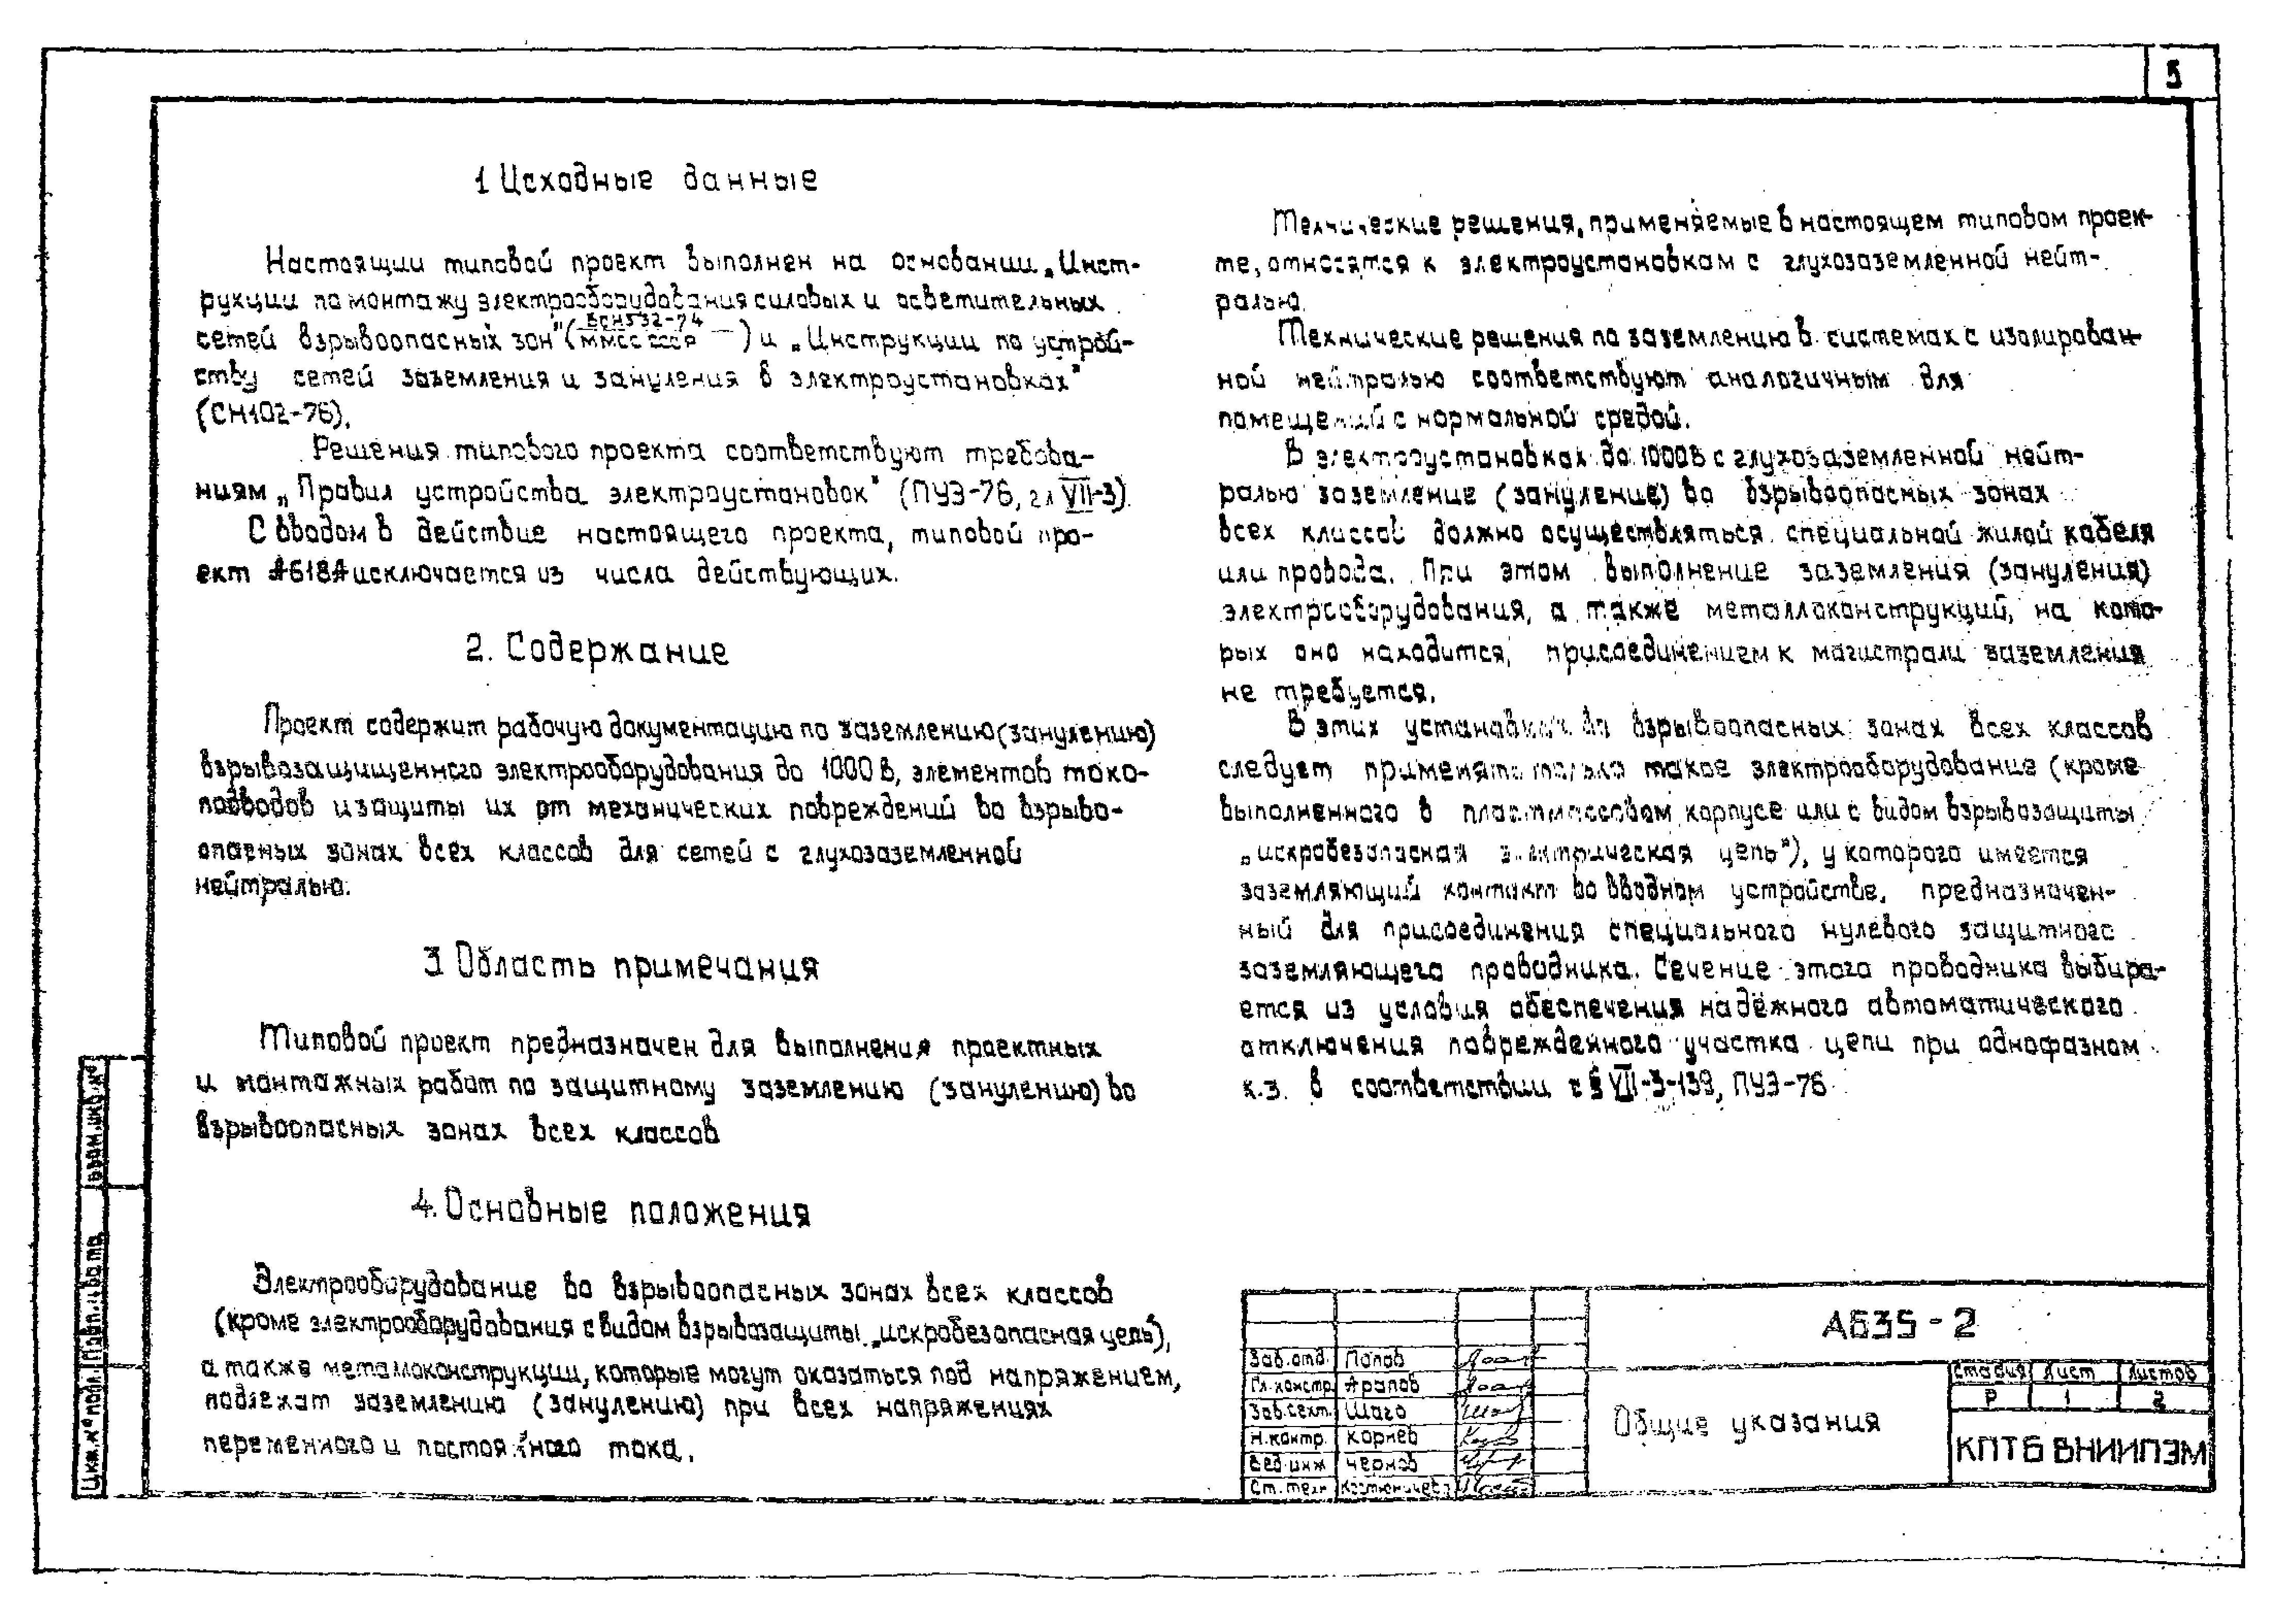 5
1 Исходные данные
Настоящии типовой проект выполнен на основании „Инст-
рукции по монтажу электрооборудования силовых и осветительных
сетей взрывоопасных зон" (ВСН332-74 ММСС СССР) и „Инструкции по устрой-
ству сетей заземления и зануления в электроустановках"
(СН102-76).
Решения типового проекта соответствуют требова-
ниям „Правил устройства электроустановок" (ПУЭ-76, гл VII-3)
С вводом в действие настоящего проекта, типовой про-
ект А618А исключается из числа действующих.
2. Содержание
Проект содержит рабочую документацию по заземлению (занулению)
взрывозащищенного электрооборудования до 1000 в, элементов токо-
подводов и защиты их от механических повреждений во взрыво-
опасных зонах всех классов для сетей с глухозаземленной
нейтралью.
3 Область примечания
Типовой проект предназначен для выполнения проектных
и монтажных работ по защитному заземлению (занулению) во
взрывоопасных зонах всех классов
4. Основные положения
Электрооборудование во взрывоопасных зонах всех классов
(кроме электрооборудования с видом взрывозащиты „искробезопасная цепь"),
а также металлоконструкции, которые могут оказаться под напряжением,
подлежат заземлению (занулению) при всех напряжениях
переменного и постоянного тока.
Технические решения, применяемые в настоящем типовом проек-
те, относятся к электроустановкам с глухозаземленной нейт-
ралью.
Технические решения по заземлению в системах с изолирован-
ной нейтралью соответствуют аналогичным для
помещений с нормальной средой.
В электроустановках до 1000в с глухозаземленной нейт-
ралью заземление (зануление) во взрывоопасных зонах
всех классов должно осуществляться специальной жилой кабеля
или провода. При этом выполнение заземления (зануления)
электрооборудования, а также металлоконструкций, на кото-
рых оно находится, присоединением к магистрали заземления
не требуется.
В этих установках во взрывоопасных зонах всех классов
следует применять только такое электрооборудование (кроме
выполненного в пластмассовом корпусе или с видом взрывозащиты
„искробезопасная электрическая цепь"), у которого имеется
заземляющий контакт во вводном устройстве, предназначен-
ный для присоединения специального нулевого защитного
заземляющего проводника. Сечение этого проводника выбира-
ется из условия обеспечения надёжного автоматического
отключения поврежденного участка цепи при однофазном
к.з. в соответствии с § VII-3-139, ПУЭ-76
Взам. инв. №
Подп. и дата
Инв. № подл.
Зав. отд. Попов
Гл. констр. Арапов
Зав. сект. Шаго
Н. контр. Корнев
Вед. инж Чернов
Ст. техн
А635-2
Общие указания
Стадия Лист Листов
Р 1 2
КПТБ ВНИИПЭМ